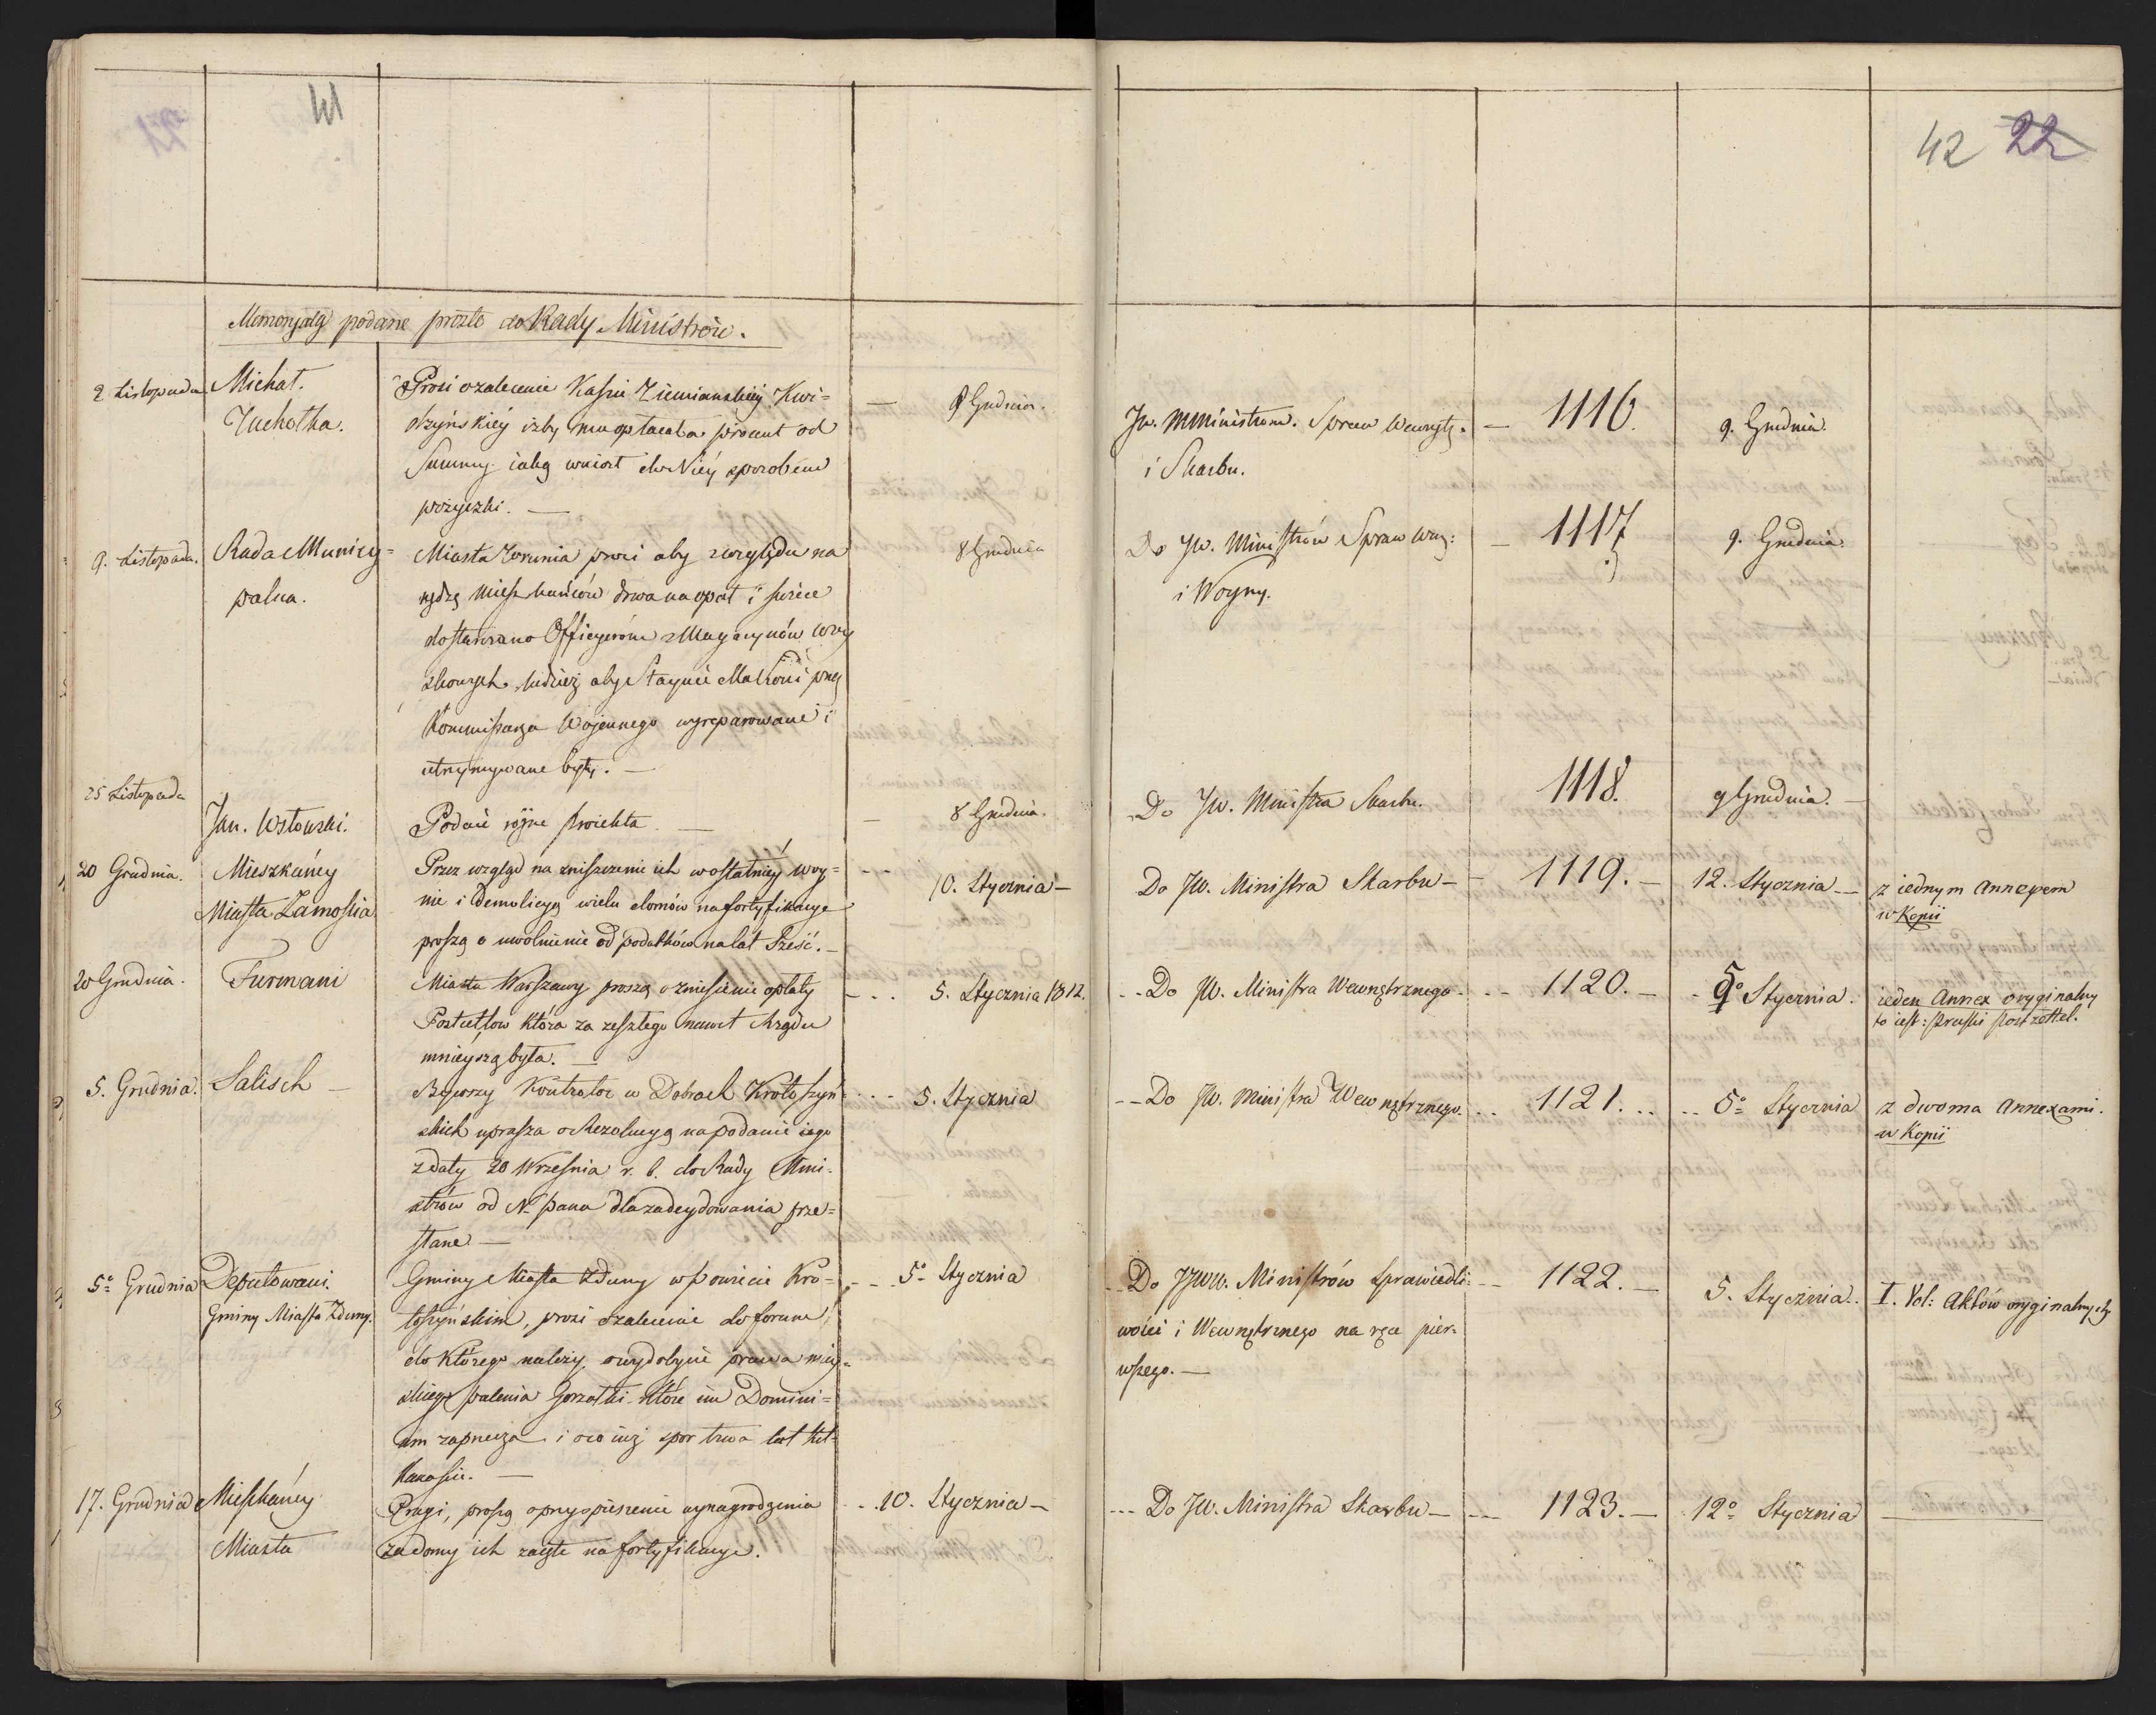 41
42 22
Memoryały podane prosto do Rady Ministrów.
2 Listopada
Michał.
Zuchotka.
Prosi o zalecenie Kassie Ziemiańskiéy Kwi=
dzyńskiéy izby mu opłacała procent od
Summy iaką wniosł do Niéy sposobem
pożyczki. —
— 8 Grudnia.
Jw. Ministrom. Spraw Wewnętz.
i Skarbu.
— 1116.
9. Grudnia.
9. Listopada.
Rada Municy=
palna.
Miasta Torunia prosi aby względu na
nędzę Mieszkańców drwa na opał i świece
dostawiano Officyerom z Magazynów Woy
skowych, tudzież aby Staynie Ma Koni przez
Kommissarza Wojennego wyreparowane i
utrzymywane były. —
8 Grudnia
Do Jw. Ministrów Spraw Wnę:
i Woyny.
— 1117
9. Grudnia.
25 Listopada
Jan. Wstowski.
Podaie różne Proiekta. —
— 8 Grudnia.
Do Jw. Ministra Skarbu.
1118.
9 Grudnia. —
20 Grudnia.
Mieszkańcy
Miasta Zamościa
Przez wzgląd na zniszczenie ich w ostatniéy woy=
nie i Demolicyą wielu domów na fortyfikacye
proszą o uwolnienie od podatków na lat Sześć. —
-- 10. Stycznia —
Do JW. Ministra Skarbu —
1119. —
12. Stycznia --
z iednym Annexem
w Kopii
20 Grudnia.
Furmani
Miasta Warszawy proszą o zniesienie opłaty
Postcetlow która za zeszłego nawet Rządu
mnieyszą była. —
--- 5. Stycznia 1812.
-- Do JW. Ministra Wewnętrznego.
-- 1120. —
5° Stycznia.
ieden Annex oryginalny
to iest: Pruski Postzettel.
5. Grudnia.
Salisch —
Bywszy Kontrolor w Dobrach Krotoszyń=
skich uprasza o Rezolucyą na podanie iego
z daty 20 Września r. b. do Rady Mini=
strów od N. Pana dla zadecydowania prze=
słane —
--- 5. Stycznia
-- Do JW. Ministra Wewnętrznego.
.. 1121. ..
.. 5° Stycznia
z dwoma Annexami.
w Kopii
5° Grudnia
Deputowani.
Gminy Miasta Zduny.
Gminy Miasta Zduny w Powiecie Kro=
toszyńskim, prosi o zalecenie do forum,
do którego należy, o wydobycie prawa miey=
skiego palenia Gorzałki. które im Domini=
um zaprzecza i o co iuż spor trwa lat kil=
kanaście. —
--- 5° Stycznia
-- Do JJWW. Ministrów Sprawiedli=
wości i Wewnętrznego na ręce pier=
wszego. —
-- 1122. —
5. Stycznia..
I. Vol: Aktów oryginalnych
17. Grudnia
Mieszkańcy
Miasta
Pragi, proszą o przyspieszenie wynagrodzenia
za domy ich zaięte na fortyfikacye.
-- 10. Stycznia —
--- Do JW. Ministra Skarbu —
--- 1123. —
12° Stycznia